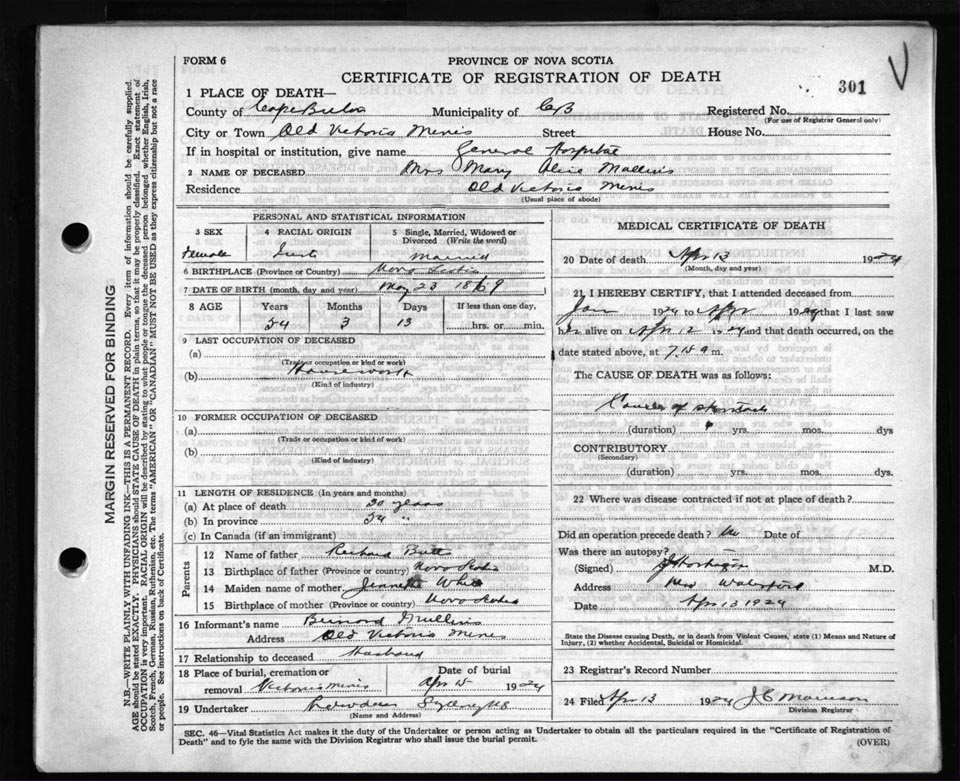 FORM 6
PROVINCE OF NOVA SCOTIA
CERTIFICATE OF REGISTRATION OF DEATH
301
1 PLACE OF DEATH—
County of Cape Breton Municipality of CB Registered No.
(For use of Registrar General only)
City or Town Old Victoria Mines Street House No.
If in hospital or institution, give name General Hospital
2 NAME OF DECEASED Mrs Mary Alice
Residence Old Victoria Mines
(Usual place of abode)
PERSONAL AND STATISTICAL INFORMATION
3 SEX 4 RACIAL ORIGIN 5 Single, Married, Widowed or Divorced (Write the word)
Female Married
6 BIRTHPLACE (Province or Country) Nova Scotia
7 DATE OF BIRTH (month, day and year) May 23 1869
8 AGE Years Months Days If less than one day,
54 3 13 hrs. or min.
9 LAST OCCUPATION OF DECEASED
(a)
(Trade or occupation or kind of work)
(b) Housework
(Kind of industry)
10 FORMER OCCUPATION OF DECEASED
(a)
(Trade or occupation or kind of work)
(b)
(Kind of industry)
11 LENGTH OF RESIDENCE (In years and months)
(a) At place of death 20 years
(b) In province 54 "
(c) In Canada (if an immigrant)
Parents
12 Name of father Richard Butt
13 Birthplace of father (Province or country) Nova Scotia
14 Maiden name of mother White
15 Birthplace of mother (Province or country) Nova Scotia
16 Informant's name
Address Old Victoria Mines
17 Relationship to deceased Husband
18 Place of burial, cremation or removal Victoria Mines Date of burial Apr 15 1924
19 Undertaker
(Name and Address)
MEDICAL CERTIFICATE OF DEATH
20 Date of death Apr 13 1924
(Month, day and year)
21 I HEREBY CERTIFY, that I attended deceased from
Jan 1924 to Apr 1924 that I last saw
her alive on Apr 12 1924 and that death occurred, on the
date stated above, at m.
The CAUSE OF DEATH was as follows:
Cancer of stomach
(duration) yrs. mos. dys
CONTRIBUTORY
(Secondary)
(duration) yrs. mos. dys.
22 Where was disease contracted if not at place of death?
Did an operation precede death? no Date of
Was there an autopsy?
(Signed) M.D.
Address New Waterford
Date Apr 13 1924
State the Disease causing Death, or in death from Violent Causes, state (1) Means and Nature of Injury, (2) whether Accidental, Suicidal or Homicidal.
23 Registrar's Record Number
24 Filed Apr 13 1924 J C Morrison
Division Registrar
SEC. 46—Vital Statistics Act makes it duty of the Undertaker or person acting as Undertaker to obtain all the particulars required in the "Certificate of Registration of
Death" and to fyle the same with the Division Registrar who shall issue the burial permit.
(OVER)
MARGIN RESERVED FOR BINDING
N.B.—WRITE PLAINLY WITH UNFADING INK—THIS IS A PERMANENT RECORD. Every item of information should be carefully supplied.
AGE should be stated EXACTLY. PHYSICIANS should STATE CAUSE OF DEATH in plain terms, so that it may be properly classified. Exact statement of
OCCUPATION is very important. RACIAL ORIGIN will be described by stating to what people or tongue the deceased person belonged, whether English, Irish,
Scotch, French, German, Russian, Ruthenian, etc. The terms "AMERICAN" OR "CANADIAN" MUST NOT BE USED as they express citizenship but not a race
or people. See instructions on back of Certificate.